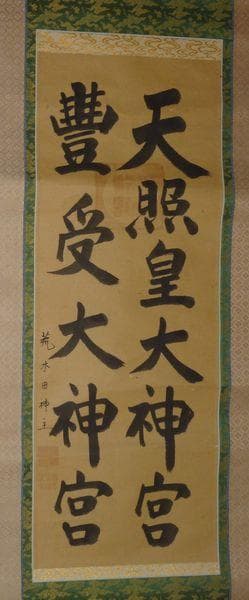 天照皇大神宮
豐受大神宮
荒木田神主